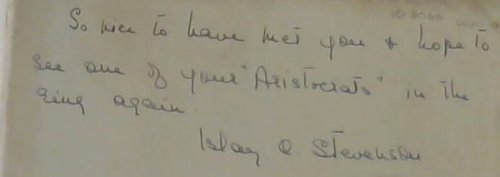 So nice to have met you & hope to
see one of your "Aristocrats" in the
ring again.
Islay Q. Stevenson